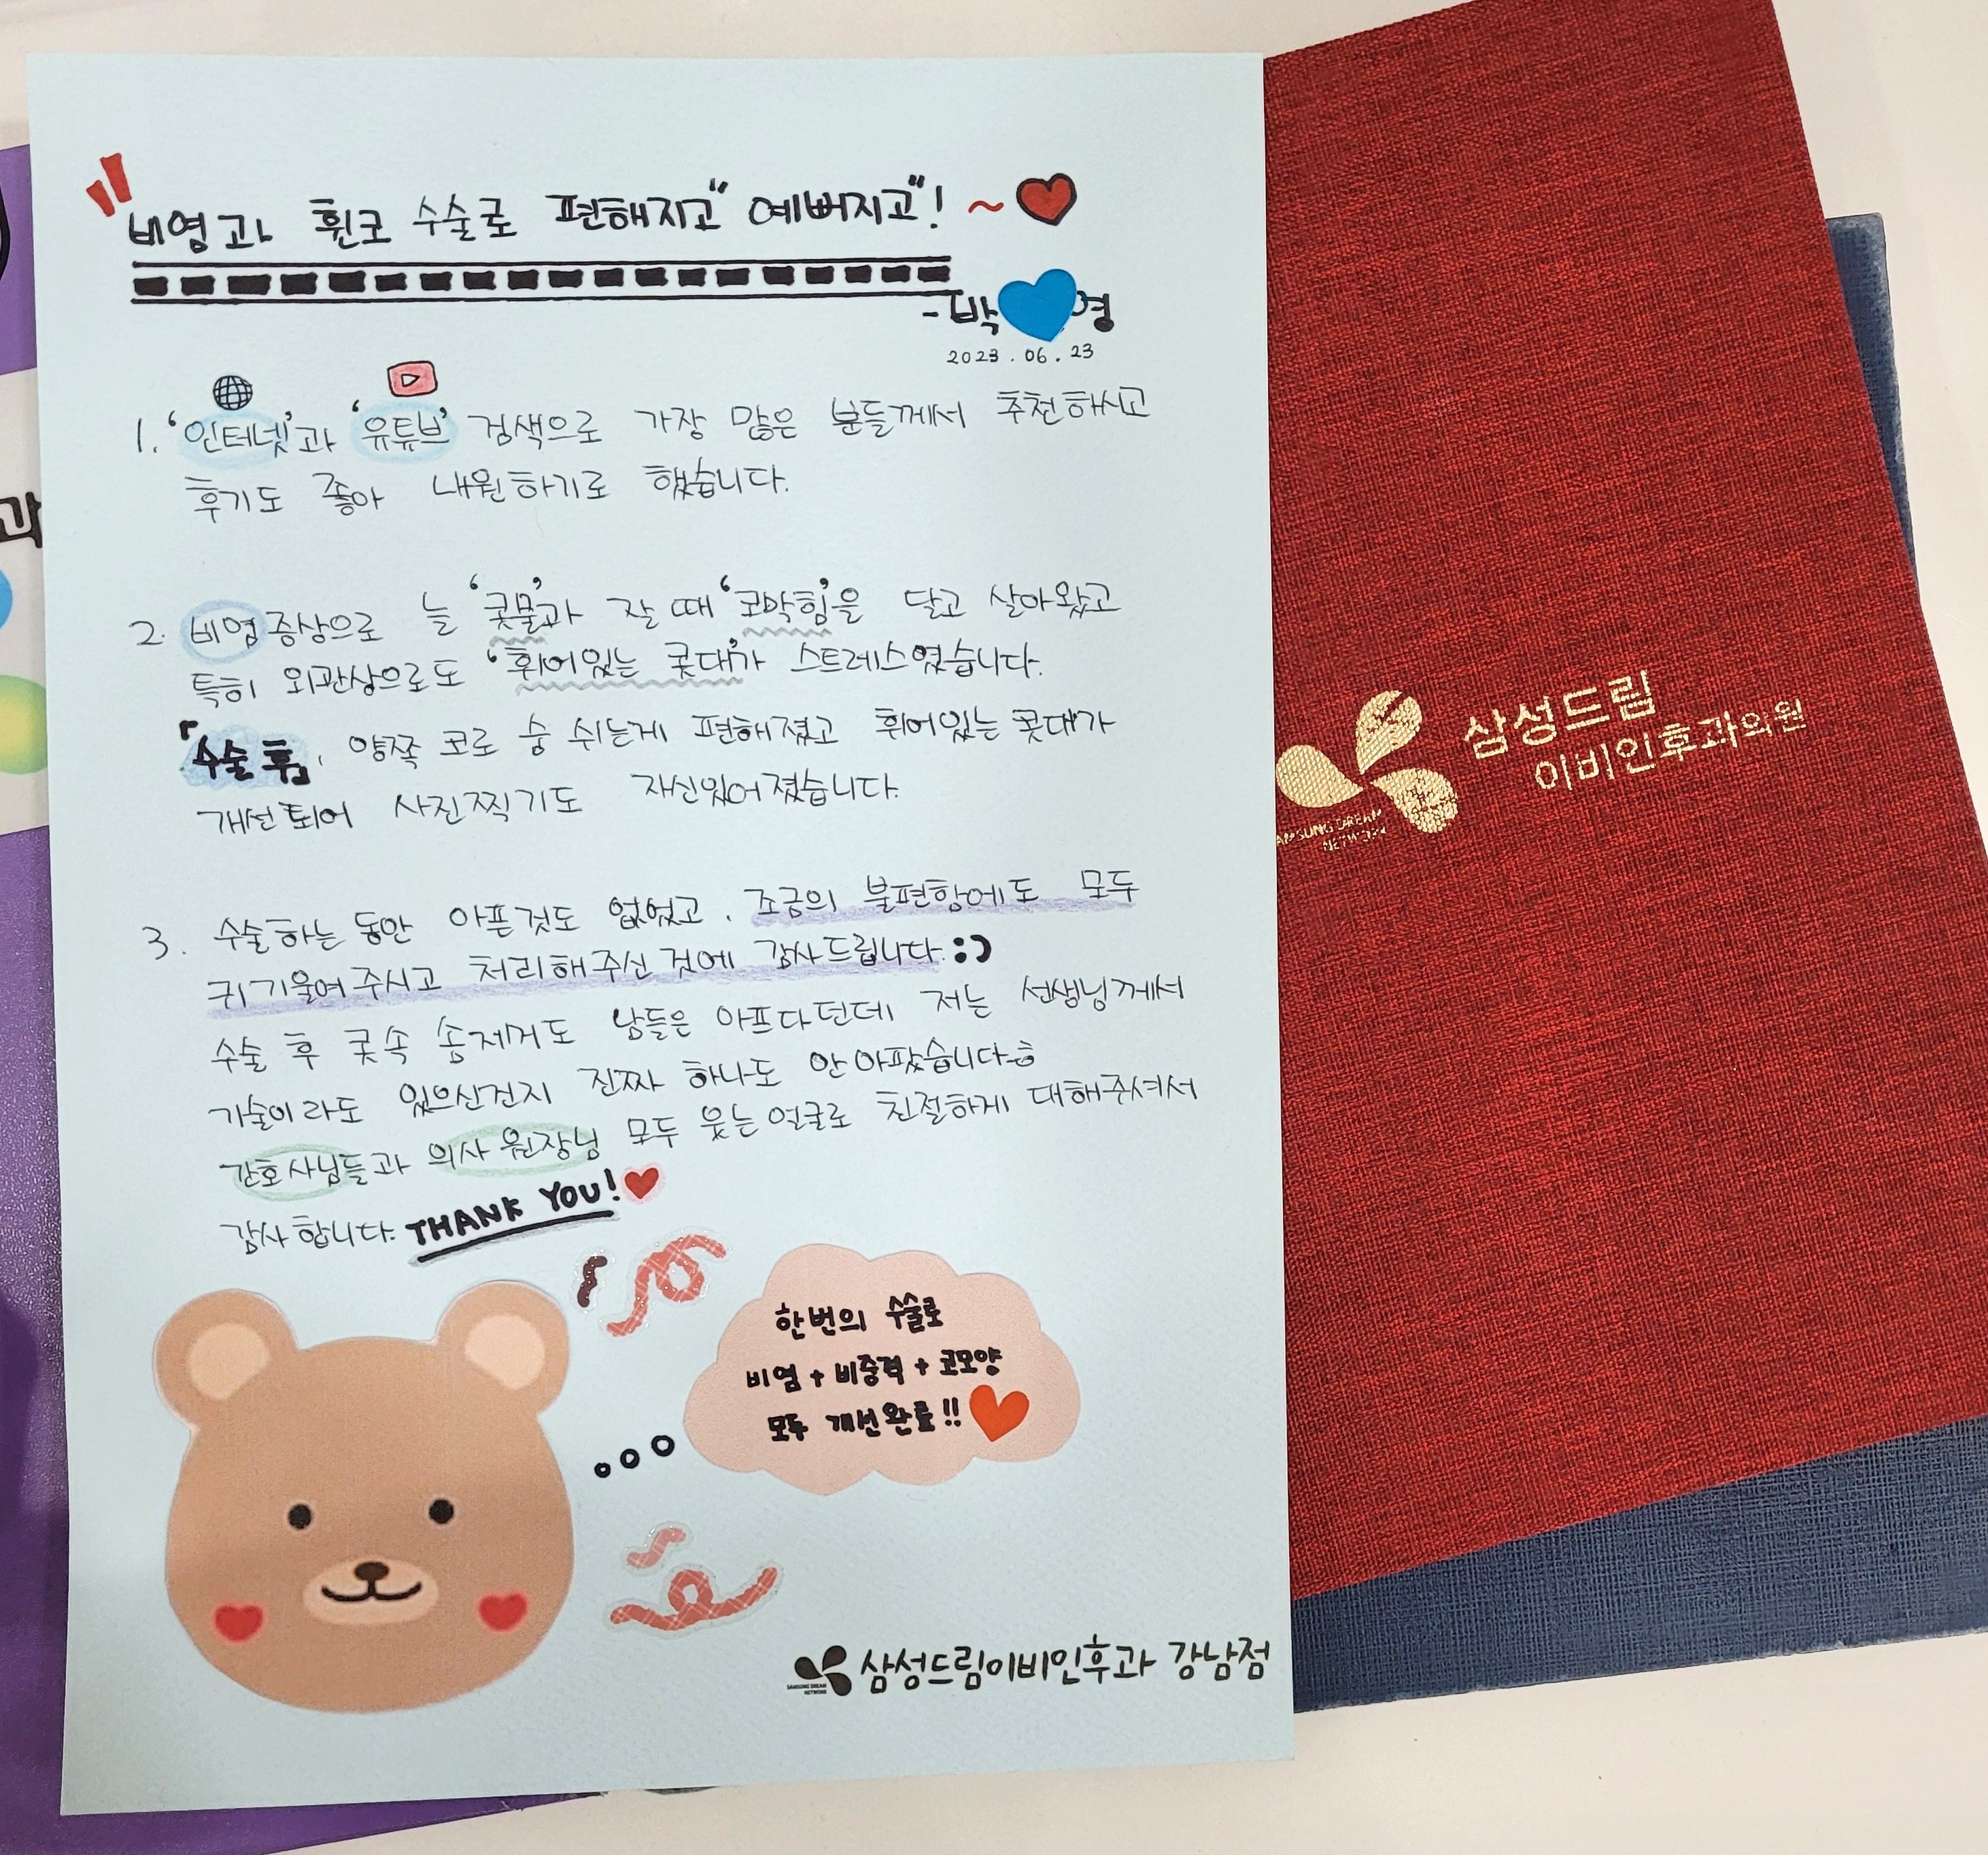 비염과 휜코 수술로 편해지고" 예뻐지고"! ~
- 박 영
2023.06.23
1. '인터넷'과 '유튜브' 검색으로 가장 많은 분들께서 추천하시고
후기도 좋아 내원하기로 했습니다.
2. 비염증상으로 늘 '콧물'과 잘 때 '코막힘'을 달고 살아왔고
특히 외관상으로도 '휘어있는 콧대'가 스트레스였습니다.
『수술 후』, 양쪽 코로 숨 쉬는게 편해졌고 휘어있는 콧대가
개선되어 사진찍기도 자신있어졌습니다.
3. 수술하는 동안 아픈것도 없었고, 조금의 불편함에도 모두
귀기울여주시고 처리해주신 것에 감사드립니다 :)
수술 후 콧속 솜제거도 남들은 아프다던데 저는 선생님께서
기술이라도 있으신건지 진짜 하나도 안아팠습니다ㅎ
간호사님들과 의사 원장님 모두 웃는얼굴로 친절하게 대해주셔서
감사합니다. THANK YOU!
한번의 수술로
비염 + 비중격 + 코모양
모두 개선완료!!
SAMSUNG DREAM
NETWORK
삼성드림이비인후과 강남점
삼성드림
이비인후과의원
AMSUNG DREAM
NETWORK
과